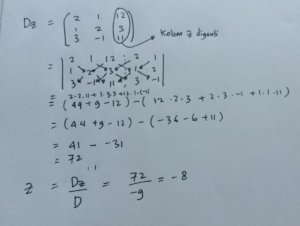 Dz = ( 2 1 12
1 2 3
3 -1 11 )
Kolom z diganti
= | 2 1 12 2 1
1 2 3 1 2
3 -1 11 3 -1 |
= 2·2·11 + 1·3·3 + 12·1·(-1)
= (44 + 9 - 12) - (12·2·3 + 2·3·-1 + 1·1·11)
= (44 + 9 - 12) - (-36 - 6 + 11)
= 41 - -31
= 72
z = Dz / D = 72 / -9 = -8